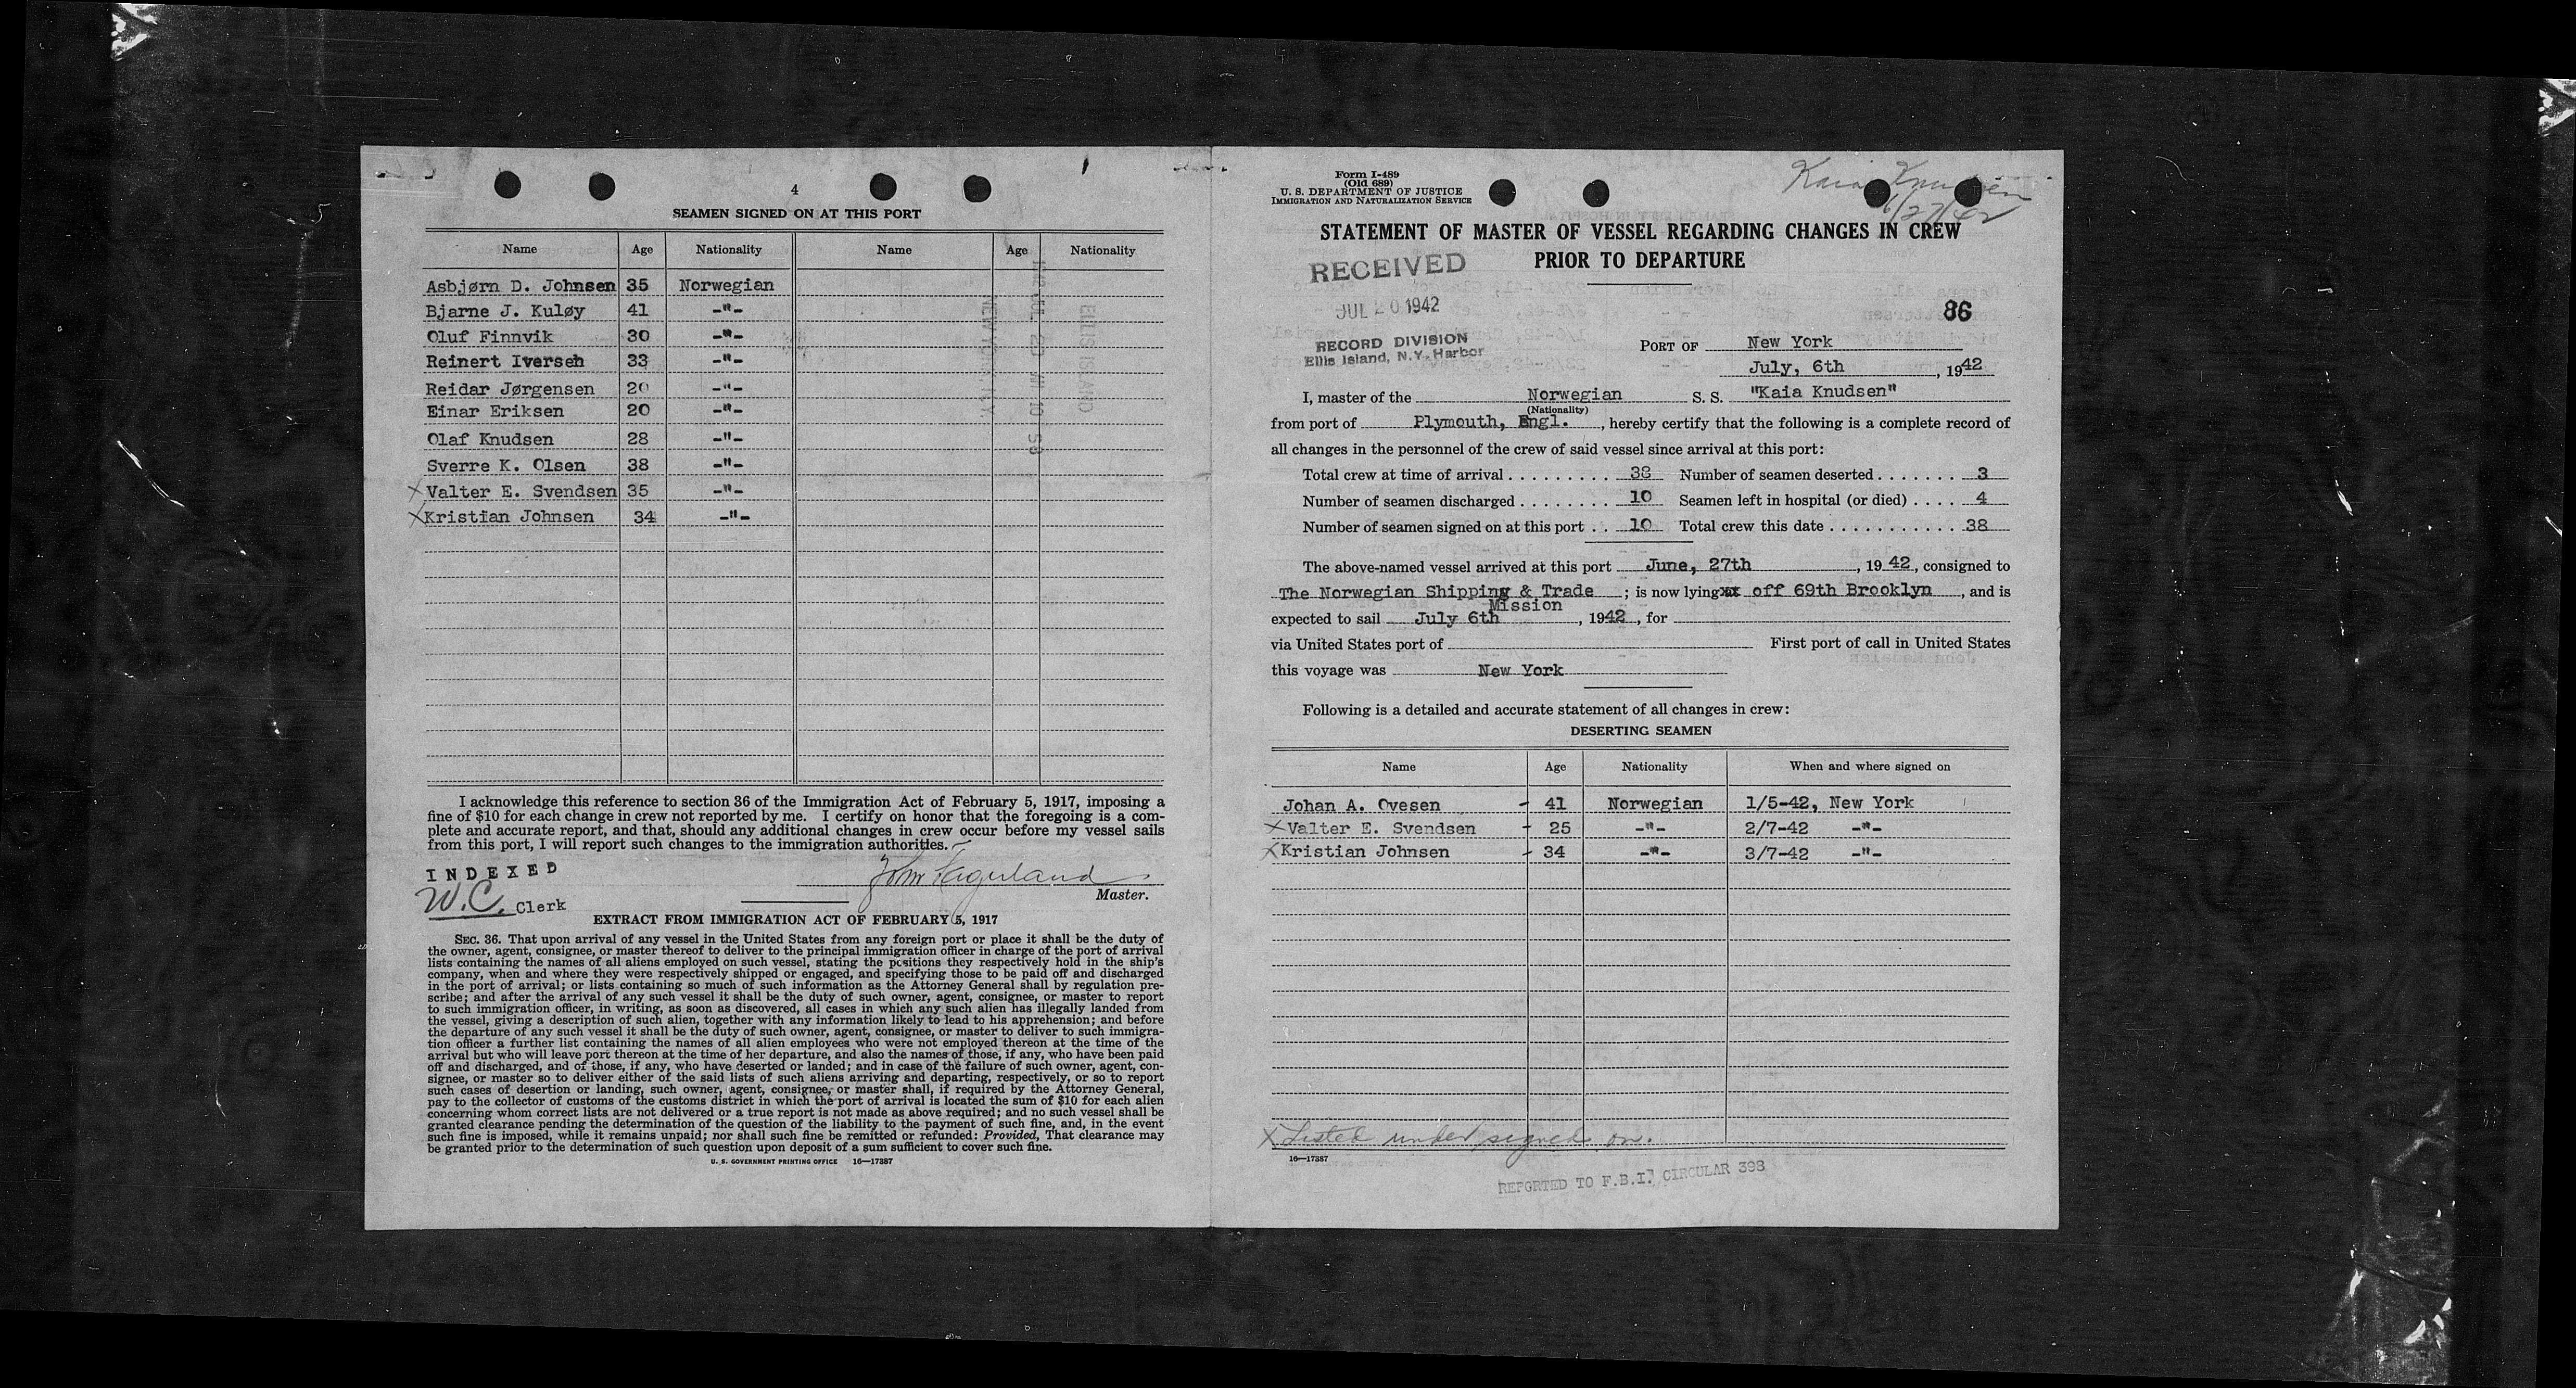 4
SEAMEN SIGNED ON AT THIS PORT
Name Age Nationality Name Age Nationality
Asbjørn D. Johnsen 35 Norwegian
Bjarne J. Kuløy 41 -"-
Oluf Finnvik 30 -"-
Reinert Iversen 33 -"-
Reidar Jørgensen 20 -"-
Einar Eriksen 20 -"-
Olaf Knudsen 28 -"-
Sverre K. Olsen 38 -"-
X Valter E. Svendsen 35 -"-
X Kristian Johnsen 34 -"-
ELLIS ISLAND
NEW YORK, N.Y.
I acknowledge this reference to section 36 of the Immigration Act of February 5, 1917, imposing a
fine of $10 for each change in crew not reported by me. I certify on honor that the foregoing is a com-
plete and accurate report, and that, should any additional changes in crew occur before my vessel sails
from this port, I will report such changes to the immigration authorities.
INDEXED
W.C. Clerk
John Fagerland
Master.
EXTRACT FROM IMMIGRATION ACT OF FEBRUARY 5, 1917
SEC. 36. That upon arrival of any vessel in the United States from any foreign port or place it shall be the duty of
the owner, agent, consignee, or master thereof to deliver to the principal immigration officer in charge of the port of arrival
lists containing the names of all aliens employed on such vessel, stating the positions they respectively hold in the ship's
company, when and where they were respectively shipped or engaged, and specifying those to be paid off and discharged
in the port of arrival; or lists containing so much of such information as the Attorney General shall by regulation pre-
scribe; and after the arrival of any such vessel it shall be the duty of such owner, agent, consignee, or master to report
to such immigration officer, in writing, as soon as discovered, all cases in which any such alien has illegally landed from
the vessel, giving a description of such alien, together with any information likely to lead to his apprehension; and before
the departure of any such vessel it shall be the duty of such owner, agent, consignee, or master to deliver to such immigra-
tion officer a further list containing the names of all alien employees who were not employed thereon at the time of the
arrival but who will leave port thereon at the time of her departure, and also the names of those, if any, who have been paid
off and discharged, and of those, if any, who have deserted or landed; and in case of the failure of such owner, agent, con-
signee, or master so to deliver either of the said lists of such aliens arriving and departing, respectively, or so to report
such cases of desertion or landing, such owner, agent, consignee, or master shall, if required by the Attorney General,
pay to the collector of customs of the customs district in which the port of arrival is located the sum of $10 for each alien
concerning whom correct lists are not delivered or a true report is not made as above required; and no such vessel shall be
granted clearance pending the determination of the question of the liability to the payment of such fine, and, in the event
such fine is imposed, while it remains unpaid; nor shall such fine be remitted or refunded: Provided, That clearance may
be granted prior to the determination of such question upon deposit of a sum sufficient to cover such fine.
U. S. GOVERNMENT PRINTING OFFICE 16—17387
Form I-489
(Old 689)
U. S. DEPARTMENT OF JUSTICE
IMMIGRATION AND NATURALIZATION SERVICE
Kaia Knudsen
6/27/42
STATEMENT OF MASTER OF VESSEL REGARDING CHANGES IN CREW
PRIOR TO DEPARTURE
RECEIVED
JUL 20 1942
RECORD DIVISION
Ellis Island, N.Y. Harbor
86
PORT OF New York
July, 6th, 1942
I, master of the Norwegian S. S. "Kaia Knudsen"
(Nationality)
from port of Plymouth, Engl., hereby certify that the following is a complete record of
all changes in the personnel of the crew of said vessel since arrival at this port:
Total crew at time of arrival . . . . . . . . . 38 Number of seamen deserted . . . . . . . 3
Number of seamen discharged . . . . . . . . 10 Seamen left in hospital (or died) . . . . 4
Number of seamen signed on at this port . . 10 Total crew this date . . . . . . . . . . . 38
The above-named vessel arrived at this port June, 27th, 19 42, consigned to
The Norwegian Shipping & Trade ; is now lying xx off 69th Brooklyn, and is
Mission
expected to sail July 6th, 1942, for
via United States port of First port of call in United States
this voyage was New York
Following is a detailed and accurate statement of all changes in crew:
DESERTING SEAMEN
Name Age Nationality When and where signed on
Johan A. Ovesen - 41 Norwegian 1/5-42, New York
X Valter E. Svendsen - 25 -"- 2/7-42 -"-
X Kristian Johnsen - 34 -"- 3/7-42 -"-
X Listed under signed on.
16—17387
REPORTED TO F.B.I. CIRCULAR 398